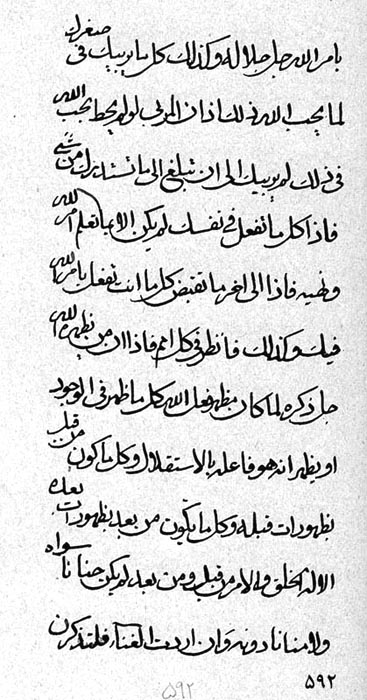 بامر الله جل جلاله وكذلك كل ما يربيك فى صغرك
لما يحب الله ذلك فان المربى لو لم يحط بحب الله
فى ذلك لم يربيك الى ان تبلغ الى ما تستدرك من شئ
فاذا كل ما تفعل فى نفسك لم يكن الا بما تعلم امر الله
ونهيه فاذا الى اخر ما تقبض كل ما انت تفعل بامر الله
فيك وكذلك فانظر فى كل امم فاذا ان من يظهره الله
جل ذكره لما كان مظهر فعل الله كل ما ظهر فى الوجود
او يظهر انه هو فاعله بالاستقلال وكل ما كون من قبل
بظهورات قبله وكل ما يكون من بعد بظهورات بعده
الا له الخلق والامر من قبل ومن بعد لم يكن حنانا سواه
ولا منانا دونه وان اردت الغناء فلتذكرن
٥٩٢
٥٩٢